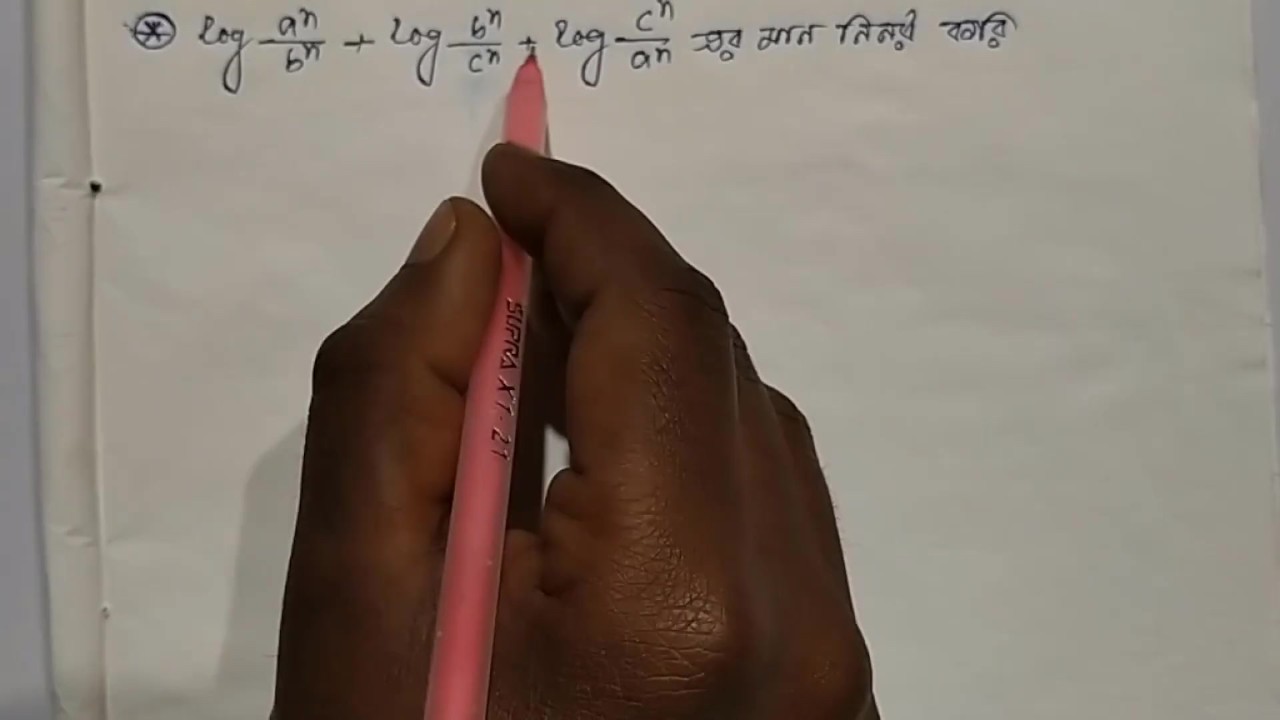 ⊛ log aⁿ/bⁿ + log bⁿ/cⁿ + log cⁿ/aⁿ এর মান নির্ণয় করি
SUPRA XT-21